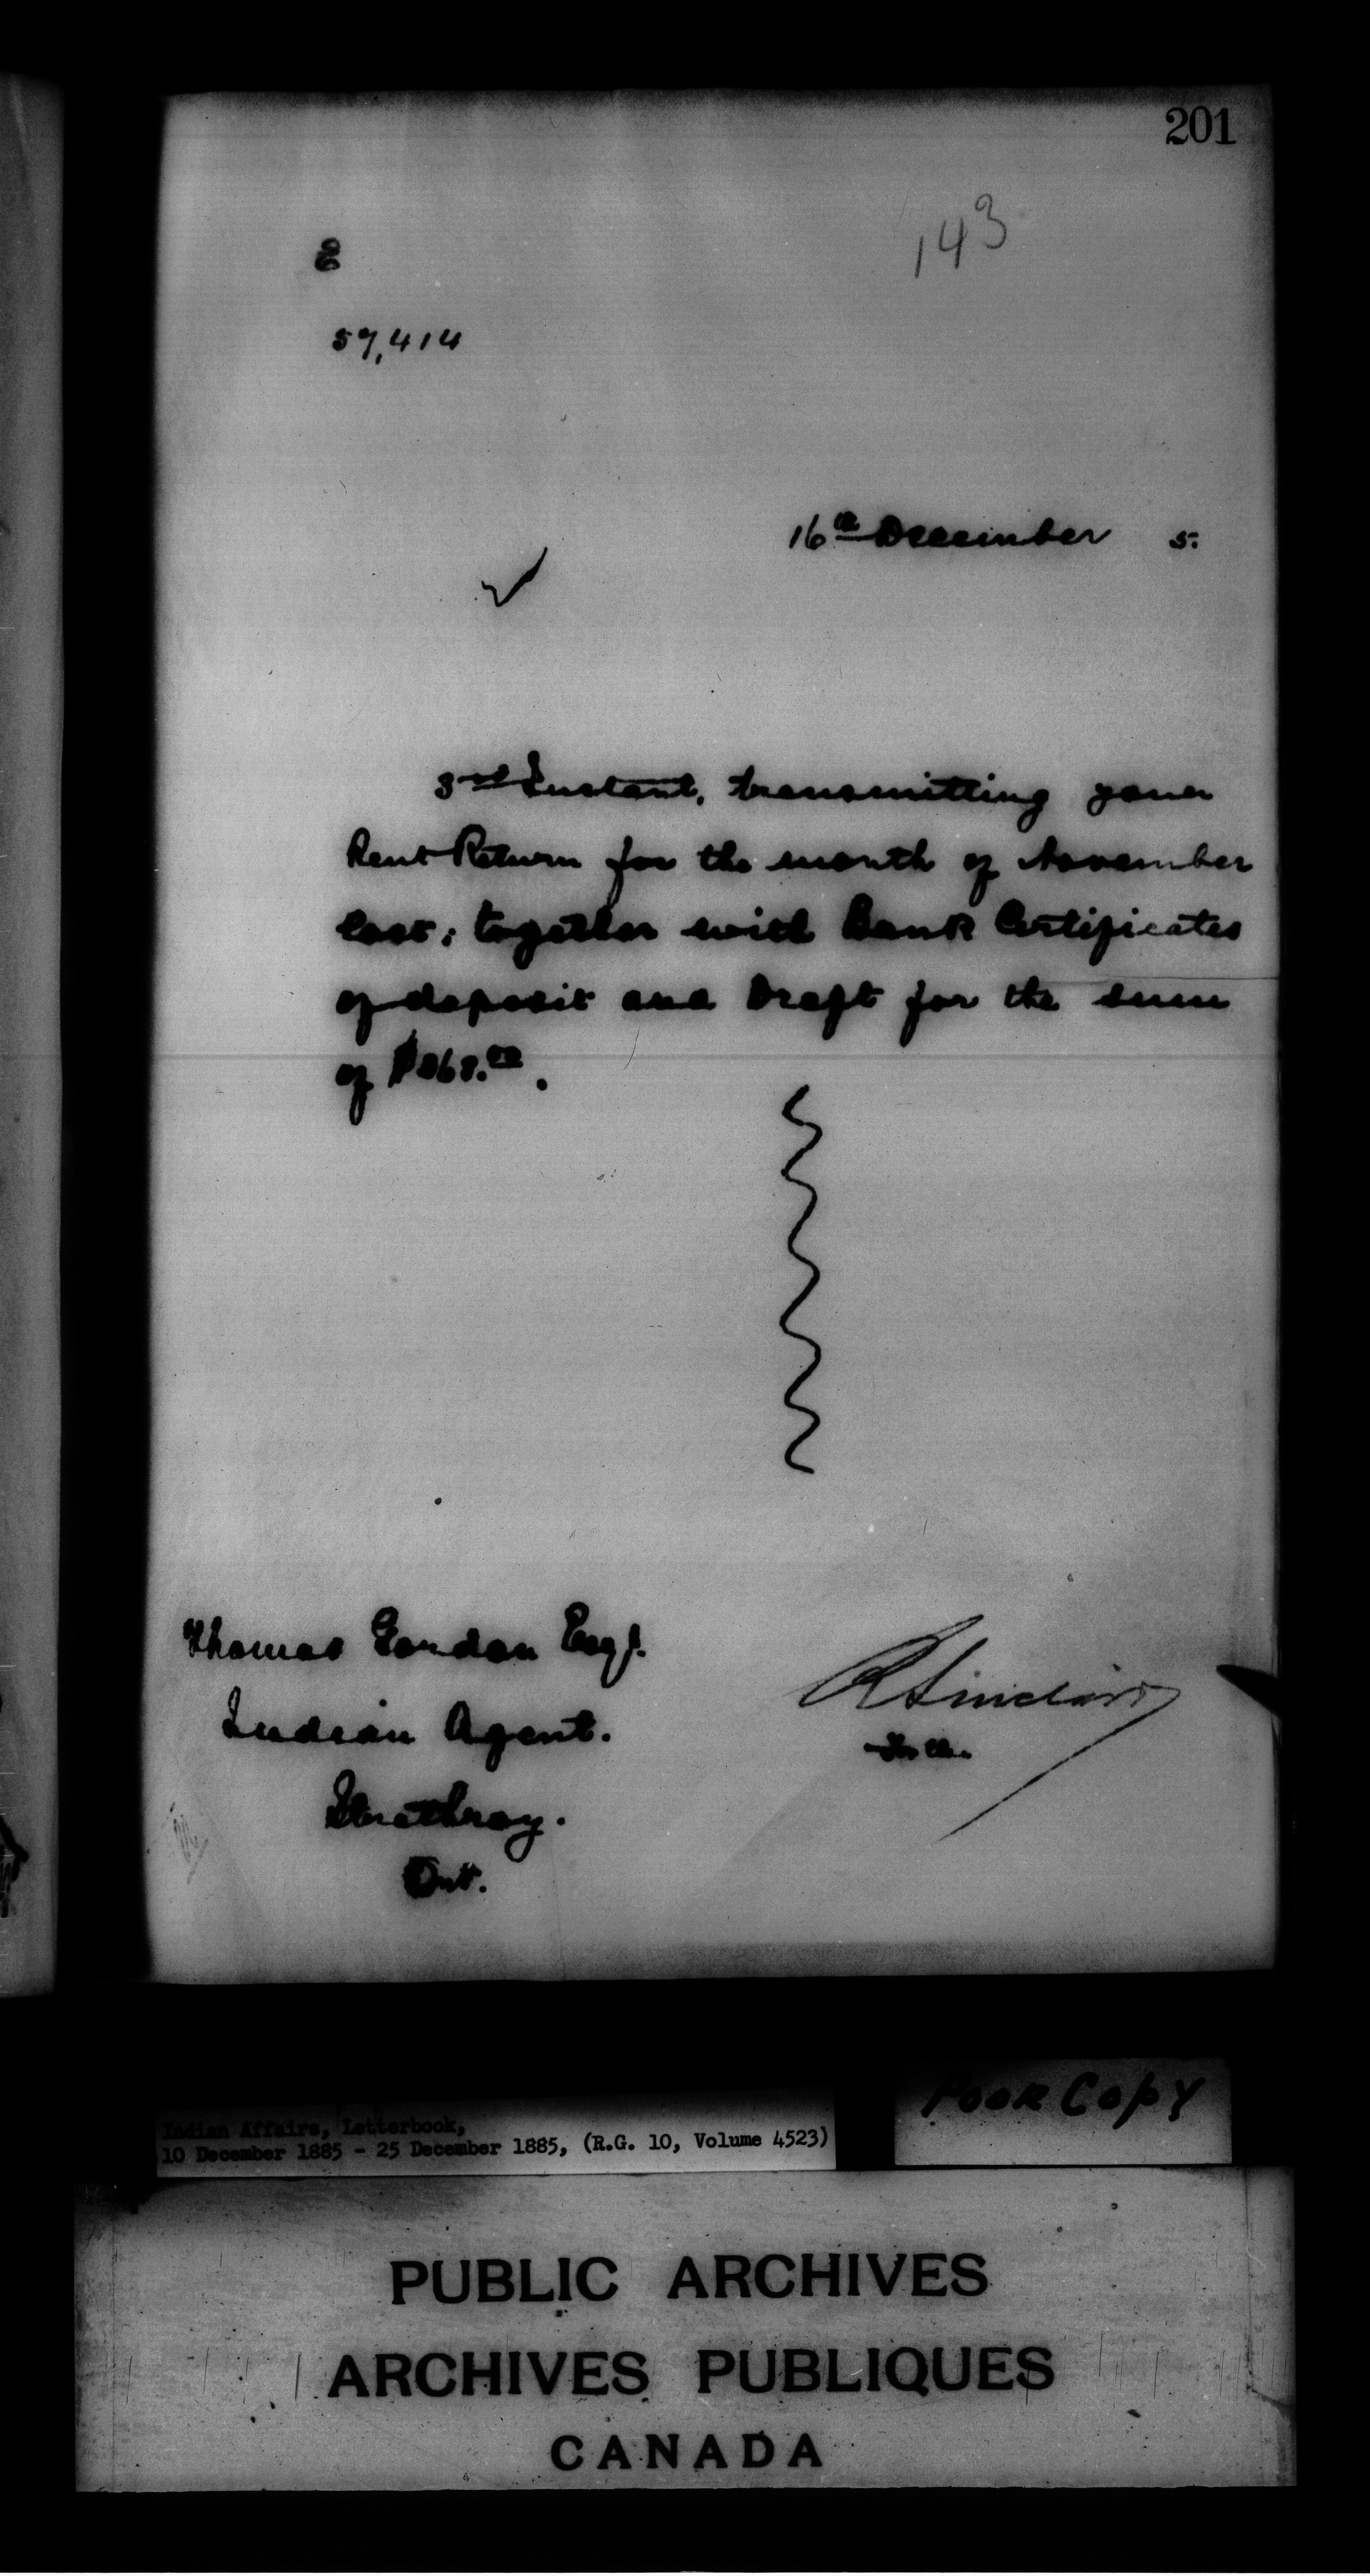 201
143
E
57,414
16th December 5.
3rd Instant, transmitting your
Rent Return for the month of November
last; together with Bank Certificates
of deposit and Draft for the sum
of
Thomas Gordon Esq.
Indian Agent.
Strathroy.
Ont.
R Sinclair
Poor Copy
Indian Affairs, Letterbook,
10 December 1885 - 25 December 1885, (R.G. 10, Volume 4523)
PUBLIC ARCHIVES
ARCHIVES PUBLIQUES
CANADA